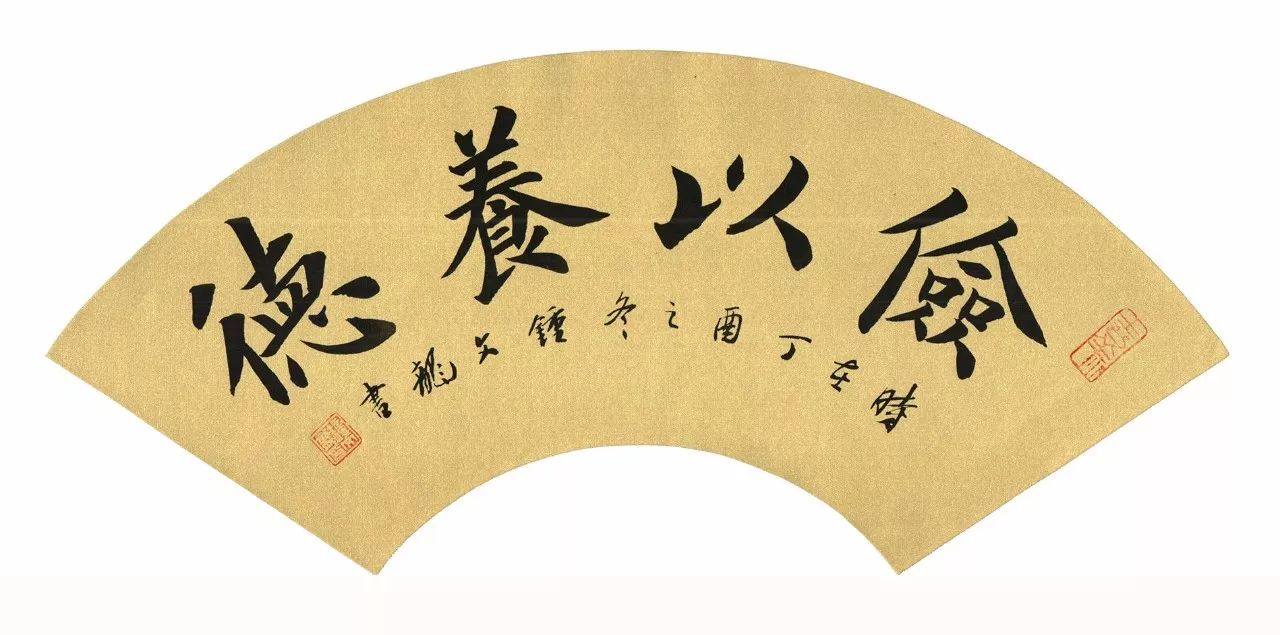 儉以養德
歲在丁酉之冬鍾文龍書